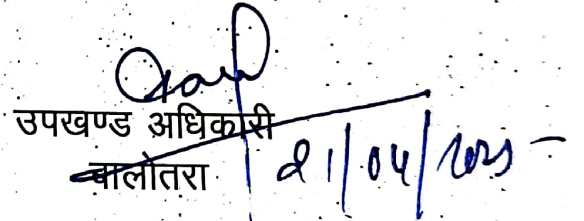 उपखण्ड अधिकारी
बालोतरा
21/04/2025